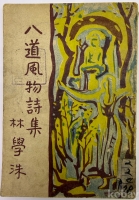 八道風物詩集
林學洙
kobay